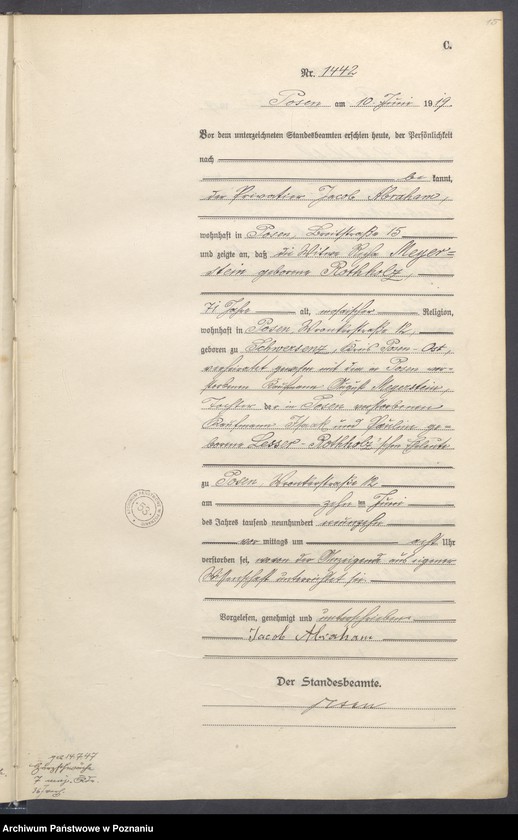 C.
Nr. 1442
Posen am 10. Juni 1919.
Vor dem unterzeichneten Standesbeamten erschien heute, der Persönlichkeit
nach
be kannt,
der Privatier Jacob Abraham,
wohnhaft in Posen, Breitstraße 15
und zeigte an, daß die Witwe Meyer=
stein geborene Rothholz,
71 Jahre alt, mosaischer Religion,
wohnhaft in Posen Wronkerstraße 12,
geboren zu Schwersenz, Kreis Posen-Ost,
verheiratet gewesen mit dem in Posen ver-
storbenen Kaufmann August Meyerstein,
Tochter der in Posen verstorbenen
Kaufmann Isaak und Pauline ge-
borene Lesser-Rothholz'schen Eheleute
zu Posen, Wronkerstraße 12
am zehn ten Juni
des Jahres tausend neunhundert neunzehn
vor mittags um acht Uhr
verstorben sei, wovon der Anzeigende aus eigener
Wissenschaft unterrichtet sei.
Vorgelesen, genehmigt und unterschrieben
Jacob Abraham
Der Standesbeamte.
Archiwum Państwowe w Poznaniu